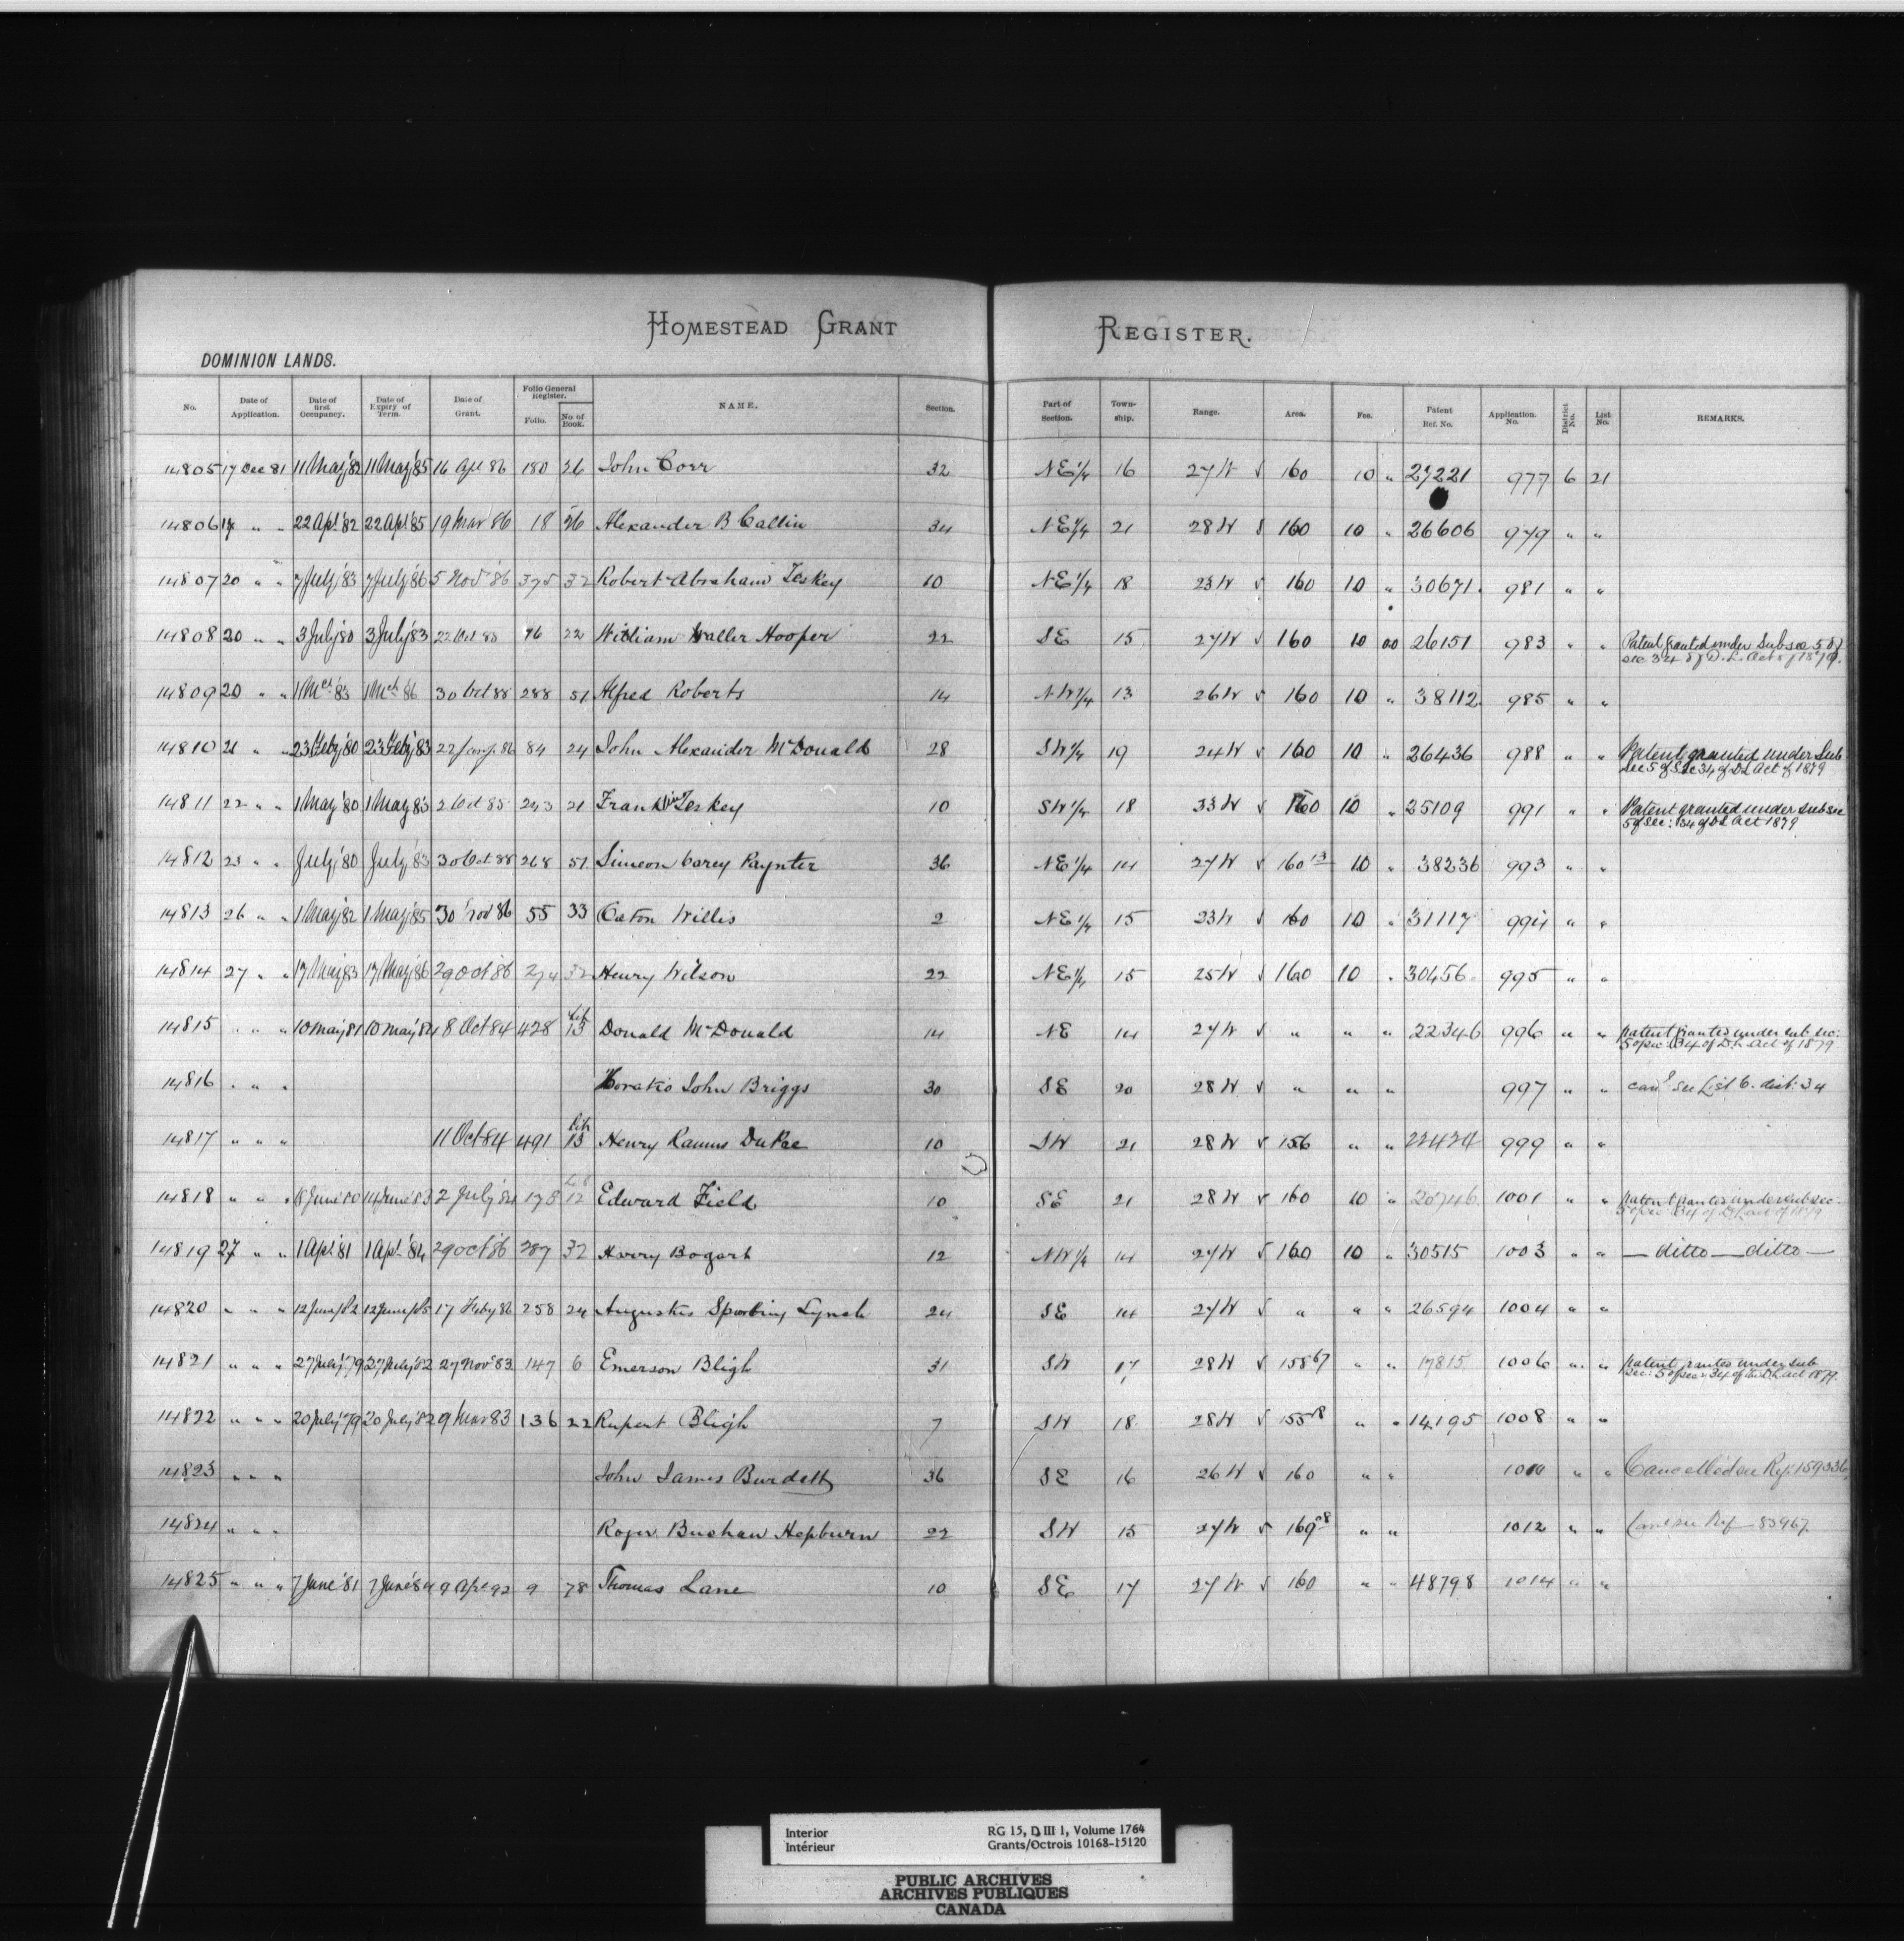 HOMESTEAD GRANT REGISTER.
DOMINION LANDS.
No. Date of Application. Date of first Occupancy. Date of Expiry of Term. Date of Grant. Folio General Register. Folio. No. of Book. NAME. Section. Part of Section. Township. Range. Area. Fee. Patent Ref. No. Application No. District No. List No. REMARKS.
14805 17 Dec 81 11 May '82 11 May '85 16 Apl 86 180 26 John Corr 32 NE 1/4 16 27 W √ 160 10 " 27221 977 6 21
14806 17 " " 22 Apl '82 22 Apl '85 19 Mar 86 18 26 Alexander B Callin 34 NE 1/4 21 28 W √ 160 10 " 26606 979 " "
14807 20 " " 7 July '83 7 July '86 5 Nov '86 375 32 Robert Abraham Teskey 10 NE 1/4 18 23 W √ 160 10 " 30671 981 " "
14808 20 " " 3 July '80 3 July '83 22 Oct 85 96 22 William Waller Hooper 22 SE 15 27 W √ 160 10 00 26151 983 " " Patent granted under Subsec 5 of sec 34 of D. L. Act of 1879.
14809 20 " " 1 Mch '83 1 Mch '86 30 Oct 88 288 51 Alfred Roberts 14 NW 1/4 13 26 W √ 160 10 " 38112 985 " "
14810 21 " " 23 Feby '80 23 Feby '83 22 Jany 86 84 24 John Alexander McDonald 28 SW 1/4 19 24 W √ 160 10 " 26436 988 " " Patent granted under Sub sec 5 of Sec 34 of DL Act of 1879
14811 22 " " 1 May '80 1 May '83 2 Oct 85 243 21 Frank Teskey 10 SW 1/4 18 33 W √ 160 10 " 25109 991 " " Patent granted under subsec 5 of sec: 34 of DL Act 1879
14812 23 " " July '80 July '83 30 Oct 88 268 51 Simeon Carey Paynter 36 NE 1/4 14 27 W √ 160 13 10 " 38236 993 " "
14813 26 " " 1 May '82 1 May '85 30 Nov 86 55 33 Caton Willis 2 NE 1/4 15 23 W √ 160 10 " 31117 994 " "
14814 27 " " 17 May 83 17 May '86 29 Oct '86 274 32 Henry Wilson 22 NE 1/4 15 25 W √ 160 10 " 30456 995 " "
14815 " " " 10 May 81 10 May '84 8 Oct 84 428 Lib 13 Donald McDonald 14 NE 14 27 W √ " " " 22346 996 " " patent granted under sub sec: 5 of sec: 34 of D.L. Act of 1879
14816 " " " Horatio John Briggs 30 SE 20 28 W √ " " " 997 " " cand. see List 6. dist: 34
14817 " " " 11 Oct 84 491 Lib 13 Henry Ramus DuPre 10 SW 21 28 W √ 156 " " 22424 999 " "
14818 " " " June '80 14 June '83 2 July '84 178 Lib 12 Edward Field 10 SE 21 28 W √ 160 10 " 20746 1001 " " patent granted under sub sec: 5 of sec: 34 of DL act of 1879
14819 27 " " 1 Apl '81 1 Apl '84 29 Oct '86 287 32 Harry Bogart 12 NW 1/4 14 27 W √ 160 10 " 30515 1003 " " — ditto — ditto —
14820 " " " 12 June /82 12 June /85 17 Feby 86 258 24 Augustus Sparling Lynch 24 SE 14 27 W √ " " " 26594 1004 " "
14821 " " " 27 July '79 27 July '82 27 Nov 83 147 6 Emerson Bligh 31 SW 17 28 W √ 158 67 " " 17815 1006 " " patent granted under sub sec: 5 of sec: 34 of the DL act 1879.
14822 " " " 20 July '79 20 July '82 9 Mar 83 136 22 Rupert Bligh 7 SW 18 28 W √ 155 8 " " 14195 1008 " "
14823 " " " John James Burdett 36 SE 16 26 W √ 160 " " 1010 " " Cancelled see Ref: 159336
14824 " " " Roger Buchan Hepburn 22 SW 15 27 W √ 169 08 " " 1012 " " Canc see Ref 83967
14825 " " " 7 June '81 7 June '84 9 Apl 92 9 78 Thomas Lane 10 SE 17 27 W √ 160 " " 48798 1014 " "
Interior
Intérieur
RG 15, D III 1, Volume 1764
Grants/Octrois 10168-15120
PUBLIC ARCHIVES
ARCHIVES PUBLIQUES
CANADA